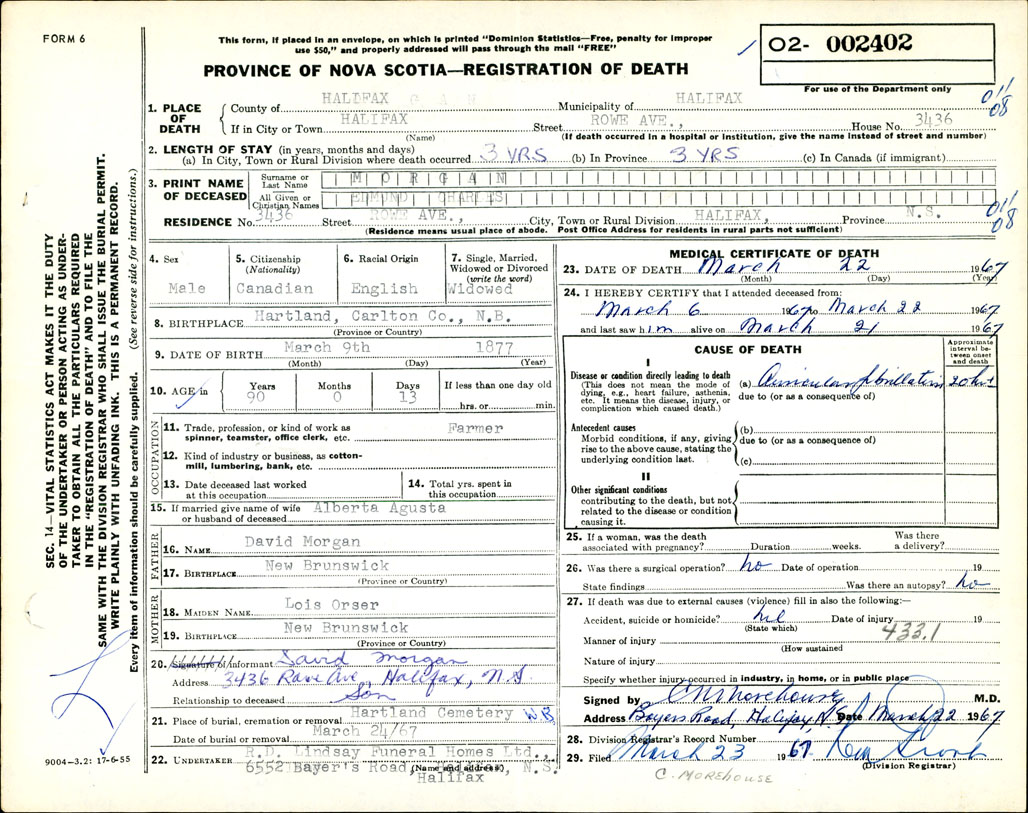 FORM 6
This form, if placed in an envelope, on which is printed "Dominion Statistics—Free, penalty for improper use $50," and properly addressed will pass through the mail "FREE"
02- 002402
For use of the Department only
PROVINCE OF NOVA SCOTIA—REGISTRATION OF DEATH
1. PLACE OF DEATH
County of HALIFAX Municipality of HALIFAX
If in City or Town HALIFAX Street ROWE AVE., House No. 3436
(Name) (If death occurred in a hospital or institution, give the name instead of street and number)
011/08
2. LENGTH OF STAY (in years, months and days)
(a) In City, Town or Rural Division where death occurred 3 YRS (b) In Province 3 YRS (c) In Canada (if immigrant)
3. PRINT NAME OF DECEASED
Surname or Last Name MORGAN
All Given or Christian Names EDMUND CHARLES
RESIDENCE No. 3436 Street ROWE AVE., City, Town or Rural Division HALIFAX, Province N.S.
(Residence means usual place of abode. Post Office Address for residents in rural parts not sufficient)
011/08
4. Sex Male
5. Citizenship (Nationality) Canadian
6. Racial Origin English
7. Single, Married, Widowed or Divorced (write the word) Widowed
8. BIRTHPLACE Hartland, Carlton Co., N.B.
(Province or Country)
9. DATE OF BIRTH March 9th 1877
(Month) (Day) (Year)
10. AGE in Years 90 Months 0 Days 13 If less than one day old hrs. or min.
OCCUPATION
11. Trade, profession, or kind of work as spinner, teamster, office clerk, etc. Farmer
12. Kind of industry or business, as cotton-mill, lumbering, bank, etc.
13. Date deceased last worked at this occupation
14. Total yrs. spent in this occupation
15. If married give name of wife or husband of deceased Alberta Agusta
FATHER
16. NAME David Morgan
17. BIRTHPLACE New Brunswick
(Province or Country)
MOTHER
18. MAIDEN NAME Lois Orser
19. BIRTHPLACE New Brunswick
(Province or Country)
20. Signature of informant David Morgan
Address 3436 Rowe Ave, Halifax, N.S.
Relationship to deceased Son
21. Place of burial, cremation or removal Hartland Cemetery NB
Date of burial or removal March 24/67
22. UNDERTAKER R.D. Lindsay Funeral Homes Ltd.,
6552 Bayer's Road, N.S.
(Name and address)
Halifax
MEDICAL CERTIFICATE OF DEATH
23. DATE OF DEATH March 22 1967
(Month) (Day) (Year)
24. I HEREBY CERTIFY that I attended deceased from:
March 6 1967 to March 22 1967
and last saw him alive on March 21 1967
CAUSE OF DEATH
Approximate interval between onset and death
I
Disease or condition directly leading to death
(This does not mean the mode of dying, e.g., heart failure, asthenia, etc. It means the disease, injury, or complication which caused death.)
(a) Auricular fibrillation 20 hrs
due to (or as a consequence of)
Antecedent causes
Morbid conditions, if any, giving rise to the above cause, stating the underlying condition last.
(b)
due to (or as a consequence of)
(c)
II
Other significant conditions
contributing to the death, but not related to the disease or condition causing it.
25. If a woman, was the death associated with pregnancy? Duration weeks. Was there a delivery?
26. Was there a surgical operation? no Date of operation 19
State findings Was there an autopsy? no
27. If death was due to external causes (violence) fill in also the following:—
Accident, suicide or homicide? nil Date of injury 19
(State which) 433.1
Manner of injury
(How sustained
Nature of injury
Specify whether injury occurred in industry, in home, or in public place
Signed by C M Morehouse M.D.
Address Bayers Road, Halifax, N.S. Date March 22 1967
28. Division Registrar's Record Number
29. Filed March 23 1967
(Division Registrar)
C. MOREHOUSE
SEC. 14—VITAL STATISTICS ACT MAKES IT THE DUTY
OF THE UNDERTAKER OR PERSON ACTING AS UNDER-
TAKER TO OBTAIN ALL THE PARTICULARS REQUIRED
IN THE "REGISTRATION OF DEATH" AND TO FILE THE
SAME WITH THE DIVISION REGISTRAR WHO SHALL ISSUE THE BURIAL PERMIT.
WRITE PLAINLY WITH UNFADING INK. THIS IS A PERMANENT RECORD.
Every item of information should be carefully supplied. (See reverse side for instructions.)
9004—3.2: 17-6-55